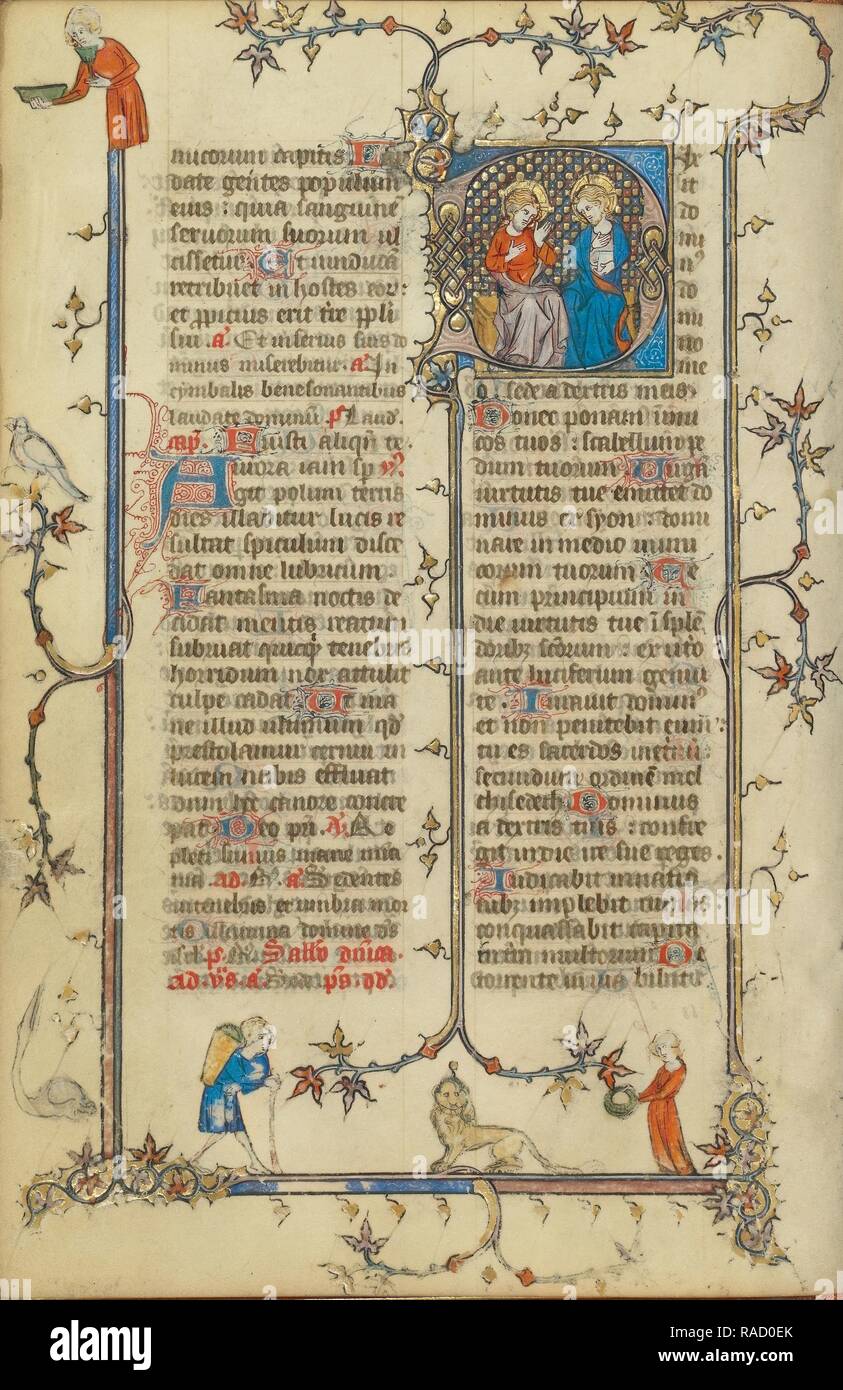 date gentes populum
eius : quia sanguinē
seruorum suorum ul
ciscetur Et uindictā
retribuet in hostes eoʀ :
et propicius erit tre ppli
sui . a. Et miserius suis do
minus miserebitur . a. In
cymbalis benesonantibus
laudate dominū . ps Laud .
cap.
Aurora iam sp
git polum terris
dies illabitur lucis re
sultat spiculum disce
dat omne lubricum .
Fantasma noctis de
cidat mentis reatus
subruat quicq tenebris
horridum nox attulit
culpe cadat Ut ma
ne illud ultimum qd
prestolamur cernui in
lucem nobis effluat
dum hec canore concre
pat Deo pri . A. Re
pleti sumus mane mia
tua . ad. B. a. Sedentes
in tenebris et umbra mor
tis illumina domine ds
isrl . ps
ad. ps. dd.
Dix
it
do
mi
n⁹
do
mi
no
me
o : sede a dextris meis
Donec ponam inimi
cos tuos : scabellum pe
dum tuorum Uirgā
uirtutis tue emittet do
minus ex syon : domi
nare in medio inimi
corum tuorum Te
cum principium in
die uirtutis tue ī splē
doribꝫ scōrum : ex utero
ante luciferum genui
te . Iurauit domin⁹
et non penitebit eum :
tu es sacerdos in eternū
secundum ordinē mel
chisedech Dominus
a dextris tuis : confre
git in die ire sue reges .
Iudicabit in natio
nibꝫ implebit ruinas
conquassabit capita
in terra multorum De
torrente in uia bibit
a
alamy
alamy stock photo
RAD0EK
www.alamy.com